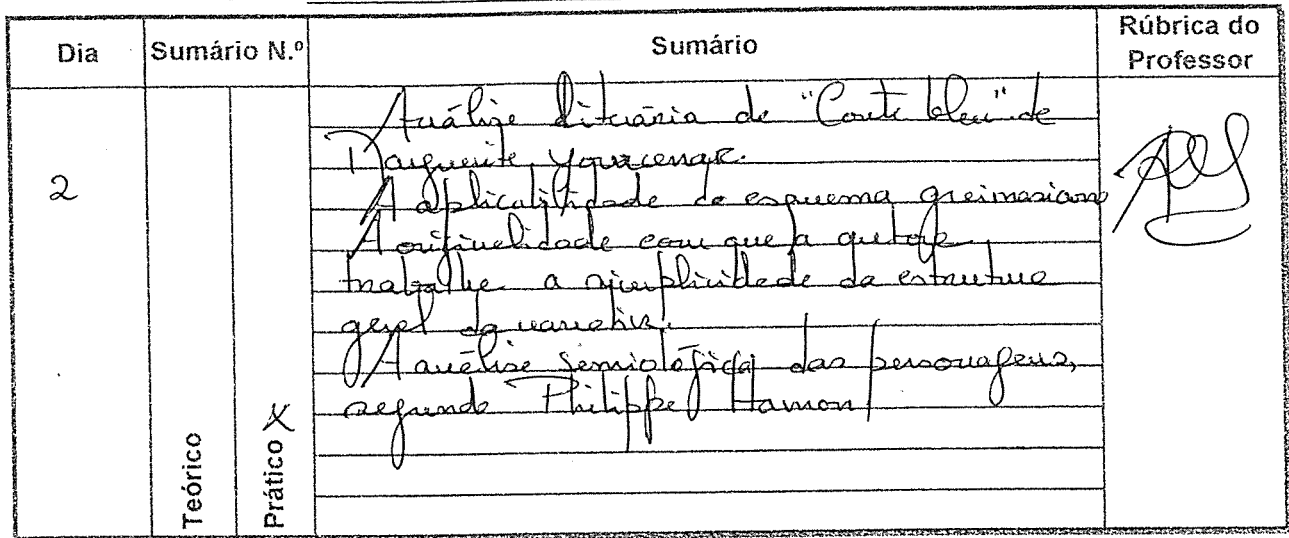 Dia
Sumário N.º
Sumário
Rúbrica do
Professor
2
Teórico
Prático X
Análise literária de "Conte bleu" de
Marguerite Yourcenar.
A aplicabilidade do esquema greimasiano
A originalidade com que a autora
trabalha a simplicidade da estrutura
geral da narrativa.
A análise semiológica das personagens,
segundo Philippe Hamon